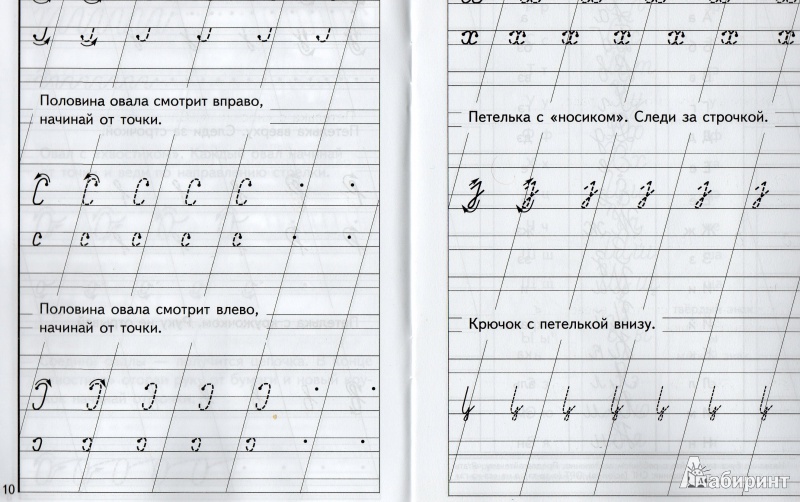 Половина овала смотрит вправо,
начинай от точки.
Половина овала смотрит влево,
начинай от точки.
10
х х х х х х х
Петелька с «носиком». Следи за строчкой.
Крючок с петелькой внизу.
Лабиринт